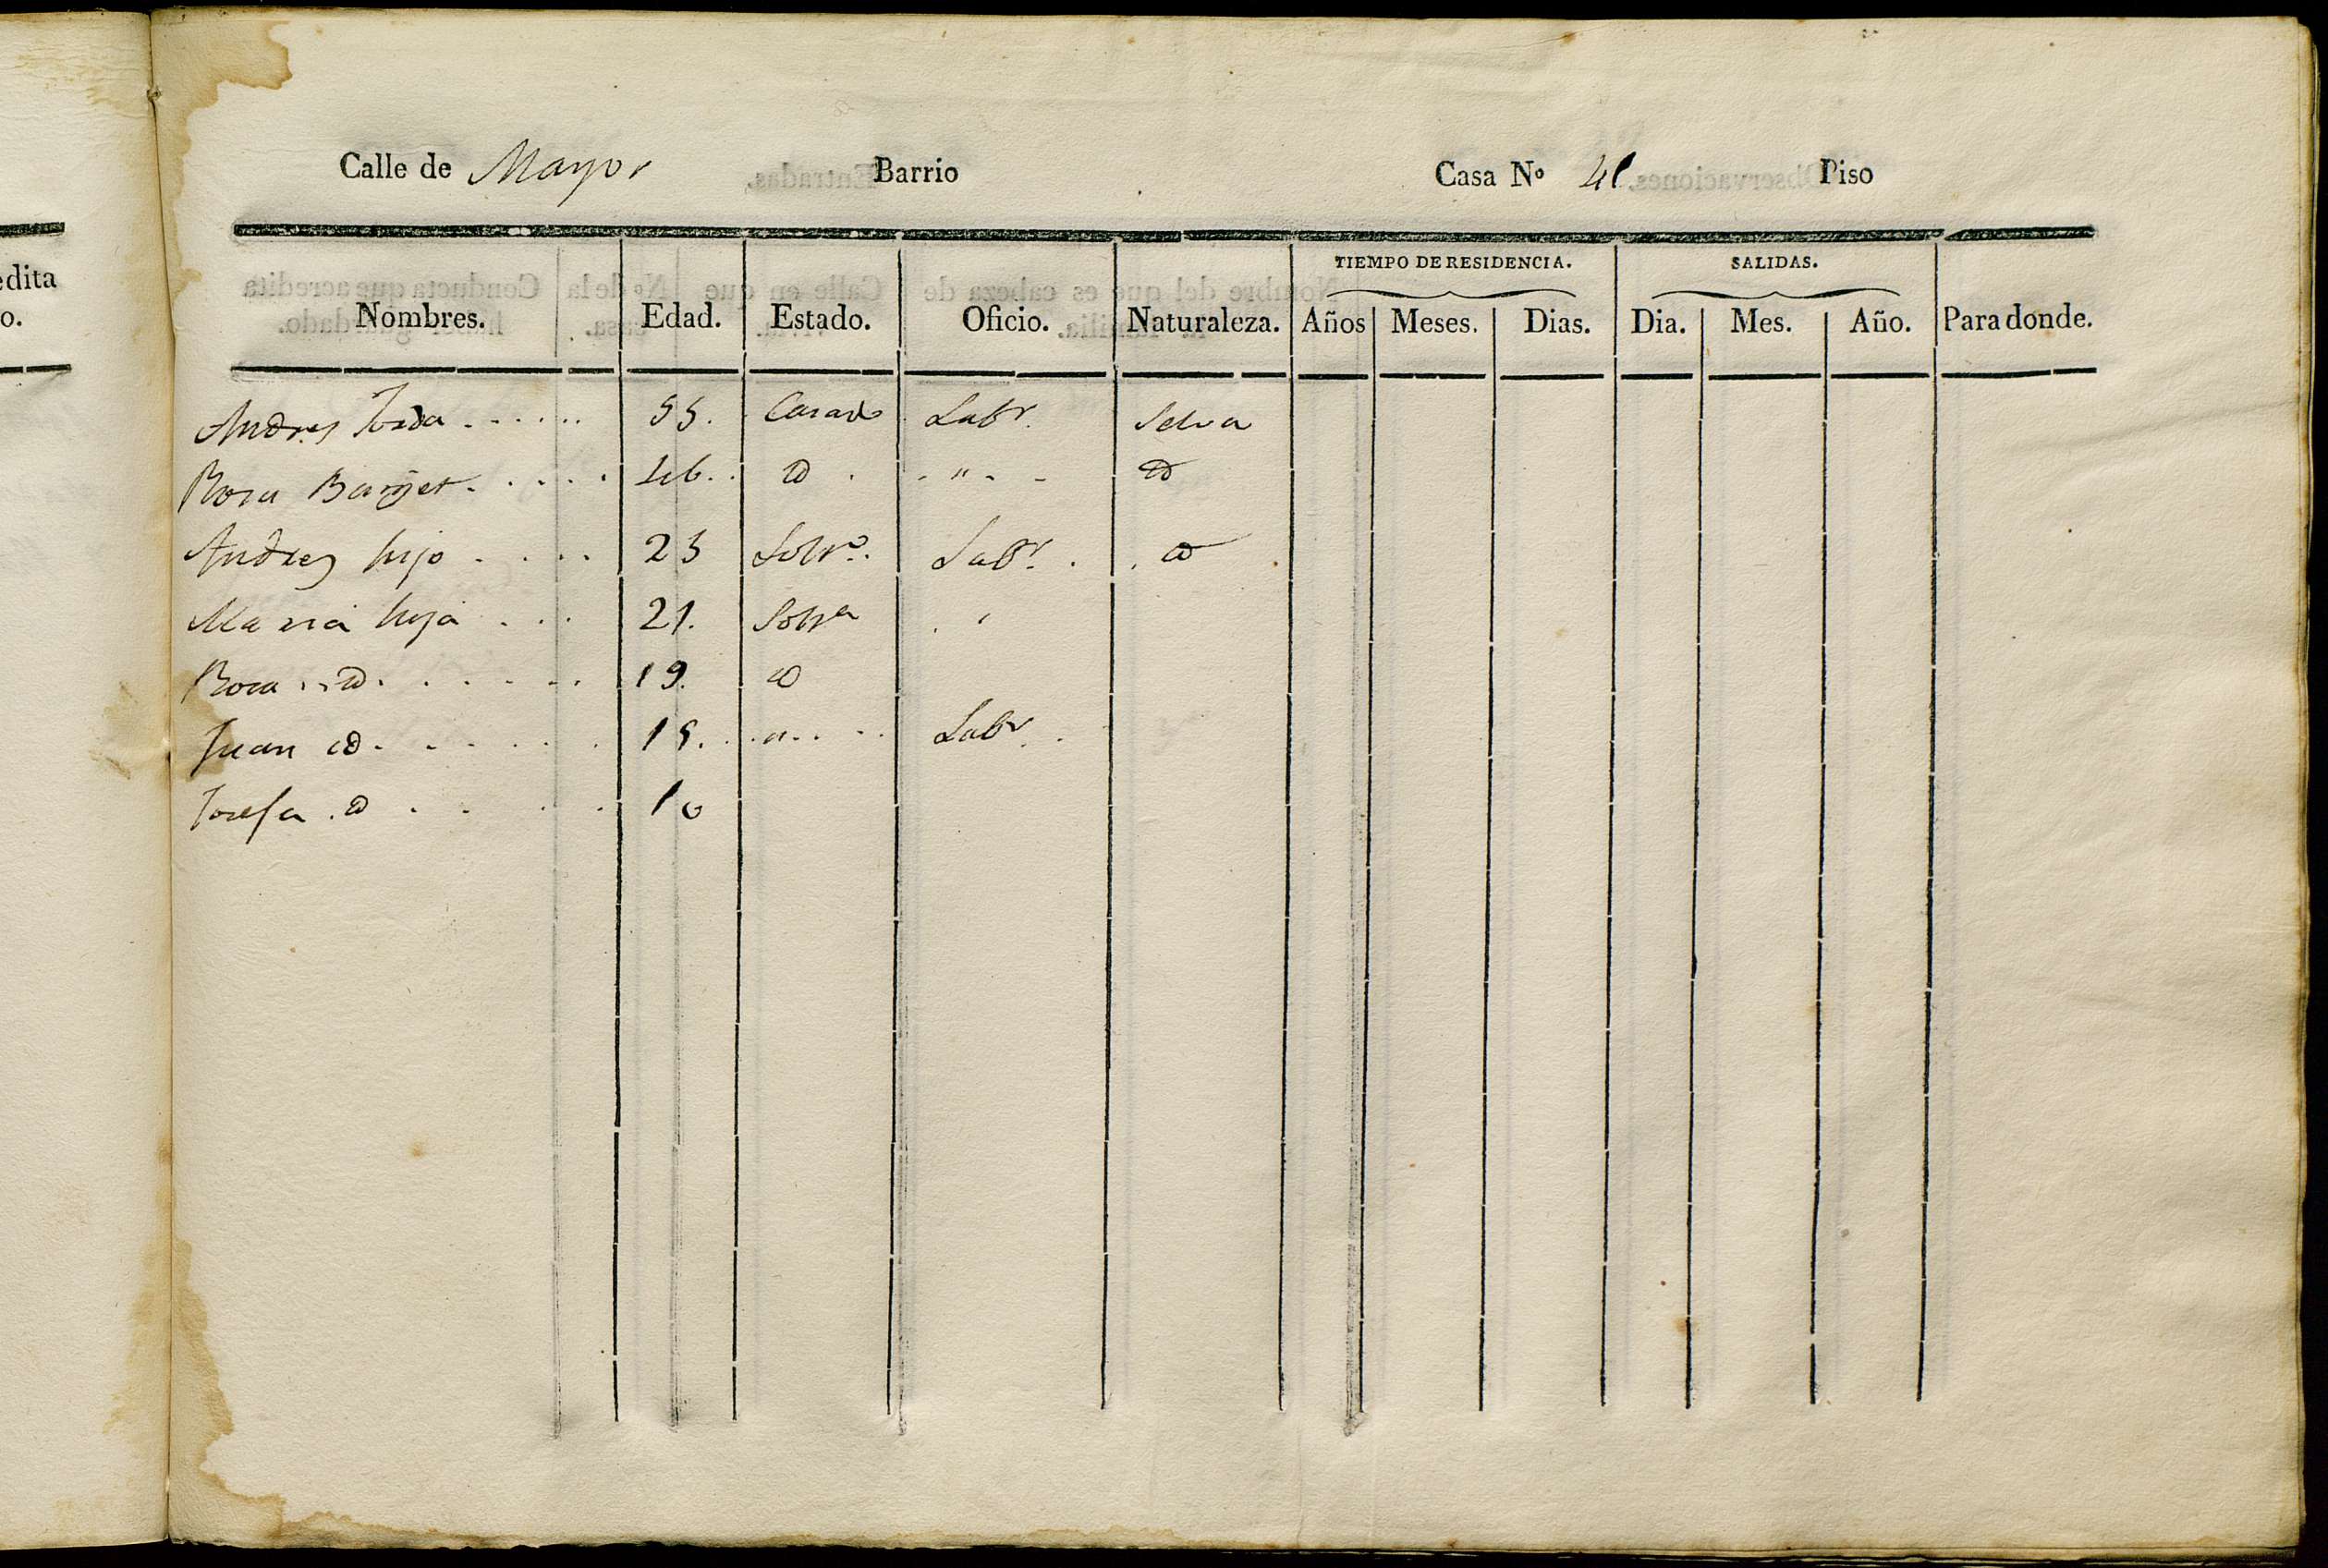 edita
o.
Calle de Mayor Barrio Casa Nº 41 Piso
TIEMPO DE RESIDENCIA. SALIDAS.
Nombres. Edad. Estado. Oficio. Naturaleza. Años Meses. Dias. Dia. Mes. Año. Para donde.
Andres 55. Casado Labr. Selva
Rosa Barget 46. id " id
Andres hijo 23 Soltro. Labr. id
Maria hija 21. Soltra
Rosa id 19. id
Juan id 15. " Labr.
Josefa id 10